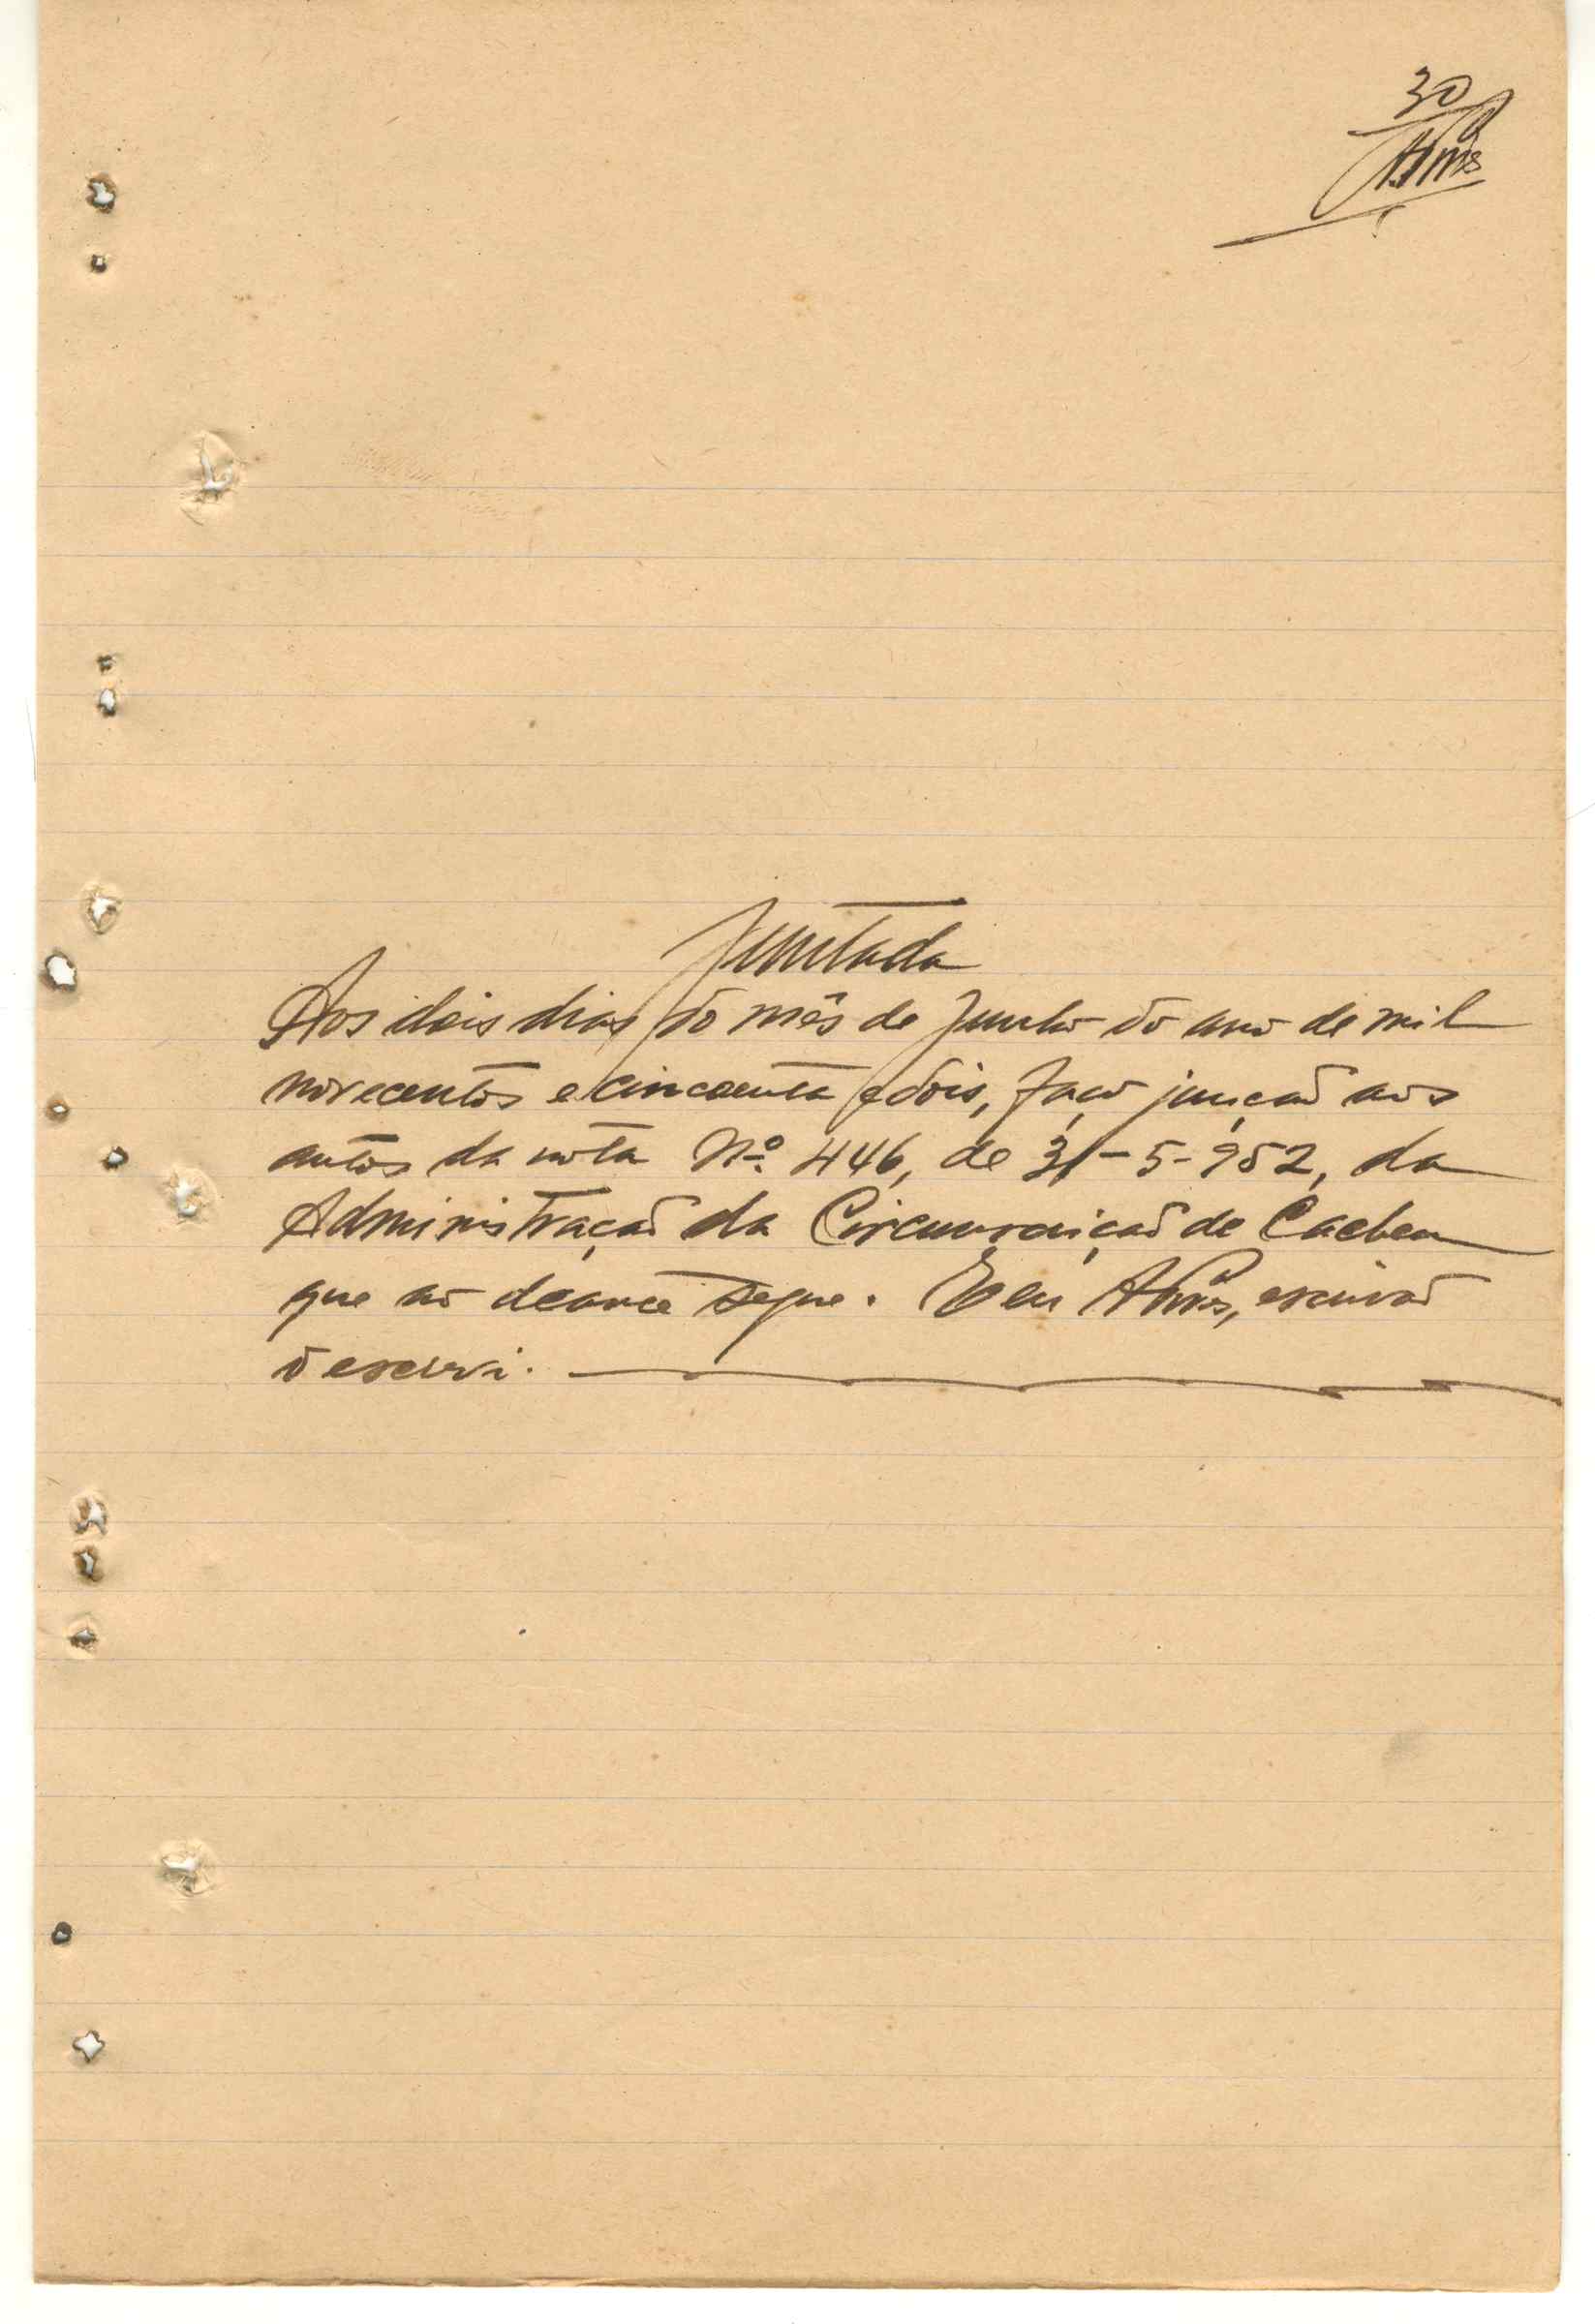 30
Juntada
Aos dois dias do mês de Junho do ano de mil
novecentos e cincoenta e dois, faço junção aos
autos da nota Nº. 446, de 31-5-952, da
Administração da Circunscrição de Cacheu
que ao deante segue. E eu escrivão
o escrevi.